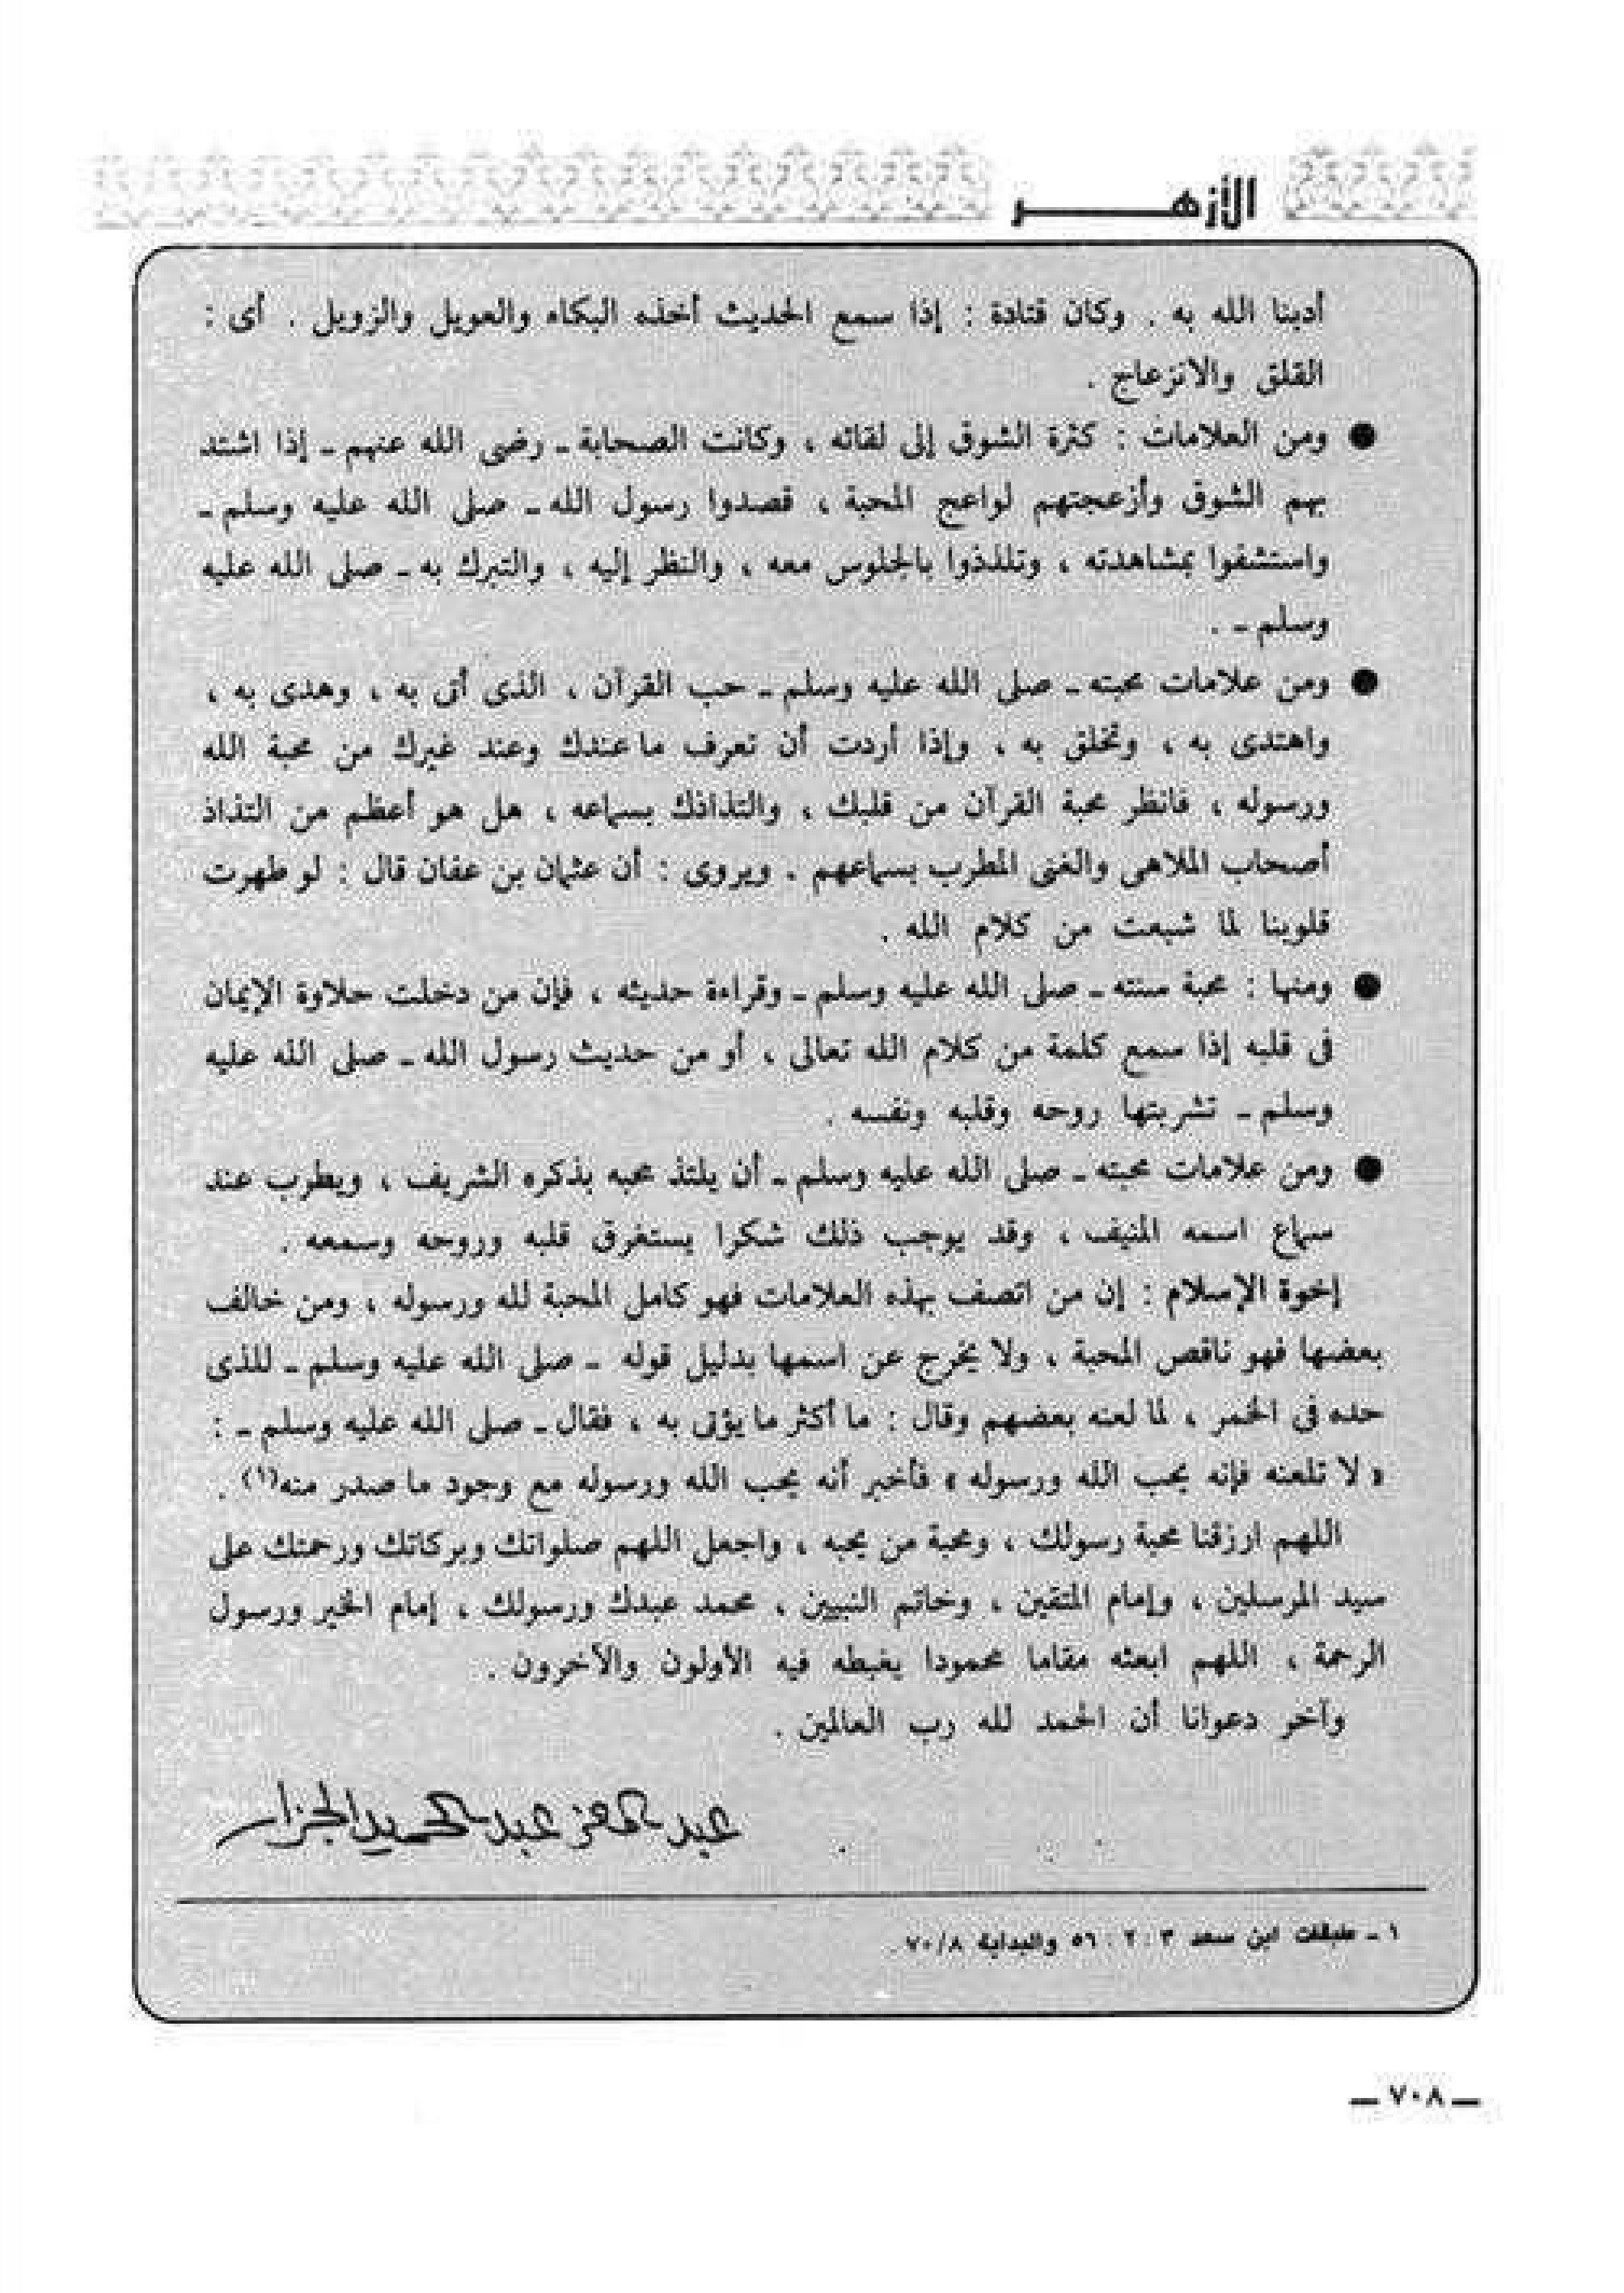 الأزهـــر
أدبنا الله به . وكان قتادة : إذا سمع الحديث أخذه البكاء والعويل والزويل . أى :
القلق والانزعاج .
● ومن العلامات : كثرة الشوق إلى لقائه ، وكانت الصحابة ـ رضى الله عنهم ـ إذا اشتد
بهم الشوق وأزعجتهم لواعج المحبة ، قصدوا رسول الله ـ صلى الله عليه وسلم ـ
واستشفوا بمشاهدته ، وتلذذوا بالجلوس معه ، والنظر إليه ، والتبرك به ـ صلى الله عليه
وسلم ـ .
● ومن علامات محبته ـ صلى الله عليه وسلم ـ حب القرآن ، الذى أتى به ، وهدى به ،
واهتدى به ، وتخلق به ، وإذا أردت أن تعرف ما عندك وعند غيرك من محبة الله
ورسوله ، فانظر محبة القرآن من قلبك ، والتذاذك بسماعه ، هل هو أعظم من التذاذ
أصحاب الملاهى والغنى المطرب بسماعهم . ويروى : أن عثمان بن عفان قال : لو طهرت
قلوبنا لما شبعت من كلام الله .
● ومنها : محبة سنته ـ صلى الله عليه وسلم ـ وقراءة حديثه ، فإن من دخلت حلاوة الإيمان
فى قلبه إذا سمع كلمة من كلام الله تعالى ، أو من حديث رسول الله ـ صلى الله عليه
وسلم ـ تشربتها روحه وقلبه ونفسه .
● ومن علامات محبته ـ صلى الله عليه وسلم ـ أن يلتذ محبه بذكره الشريف ، ويطرب عند
سماع اسمه المنيف ، وقد يوجب ذلك شكرا يستغرق قلبه وروحه وسمعه .
إخوة الإسلام : إن من اتصف بهذه العلامات فهو كامل المحبة لله ورسوله ، ومن خالف
بعضها فهو ناقص المحبة ، ولا يخرج عن اسمها بدليل قوله ـ صلى الله عليه وسلم ـ للذى
حده فى الخمر ، لما لعنه بعضهم وقال : ما أكثر ما يؤتى به ، فقال ـ صلى الله عليه وسلم ـ :
« لا تلعنه فإنه يحب الله ورسوله » فأخبر أنه يحب الله ورسوله مع وجود ما صدر منه(١) .
اللهم ارزقنا محبة رسولك ، ومحبة من يحبه ، واجعل اللهم صلواتك وبركاتك ورحمتك على
سيد المرسلين ، وإمام المتقين ، وخاتم النبيين ، محمد عبدك ورسولك ، إمام الخير ورسول
الرحمة ، اللهم ابعثه مقاما محمودا يغبطه فيه الأولون والآخرون .
وآخر دعوانا أن الحمد لله رب العالمين .
عبد المعز عبد الحميد الجزار
١ ـ طبقات ابن سعد ٣ : ٢ : ٥٦ والبداية ٧٠/٨ .
ـ ٧٠٨ ـ